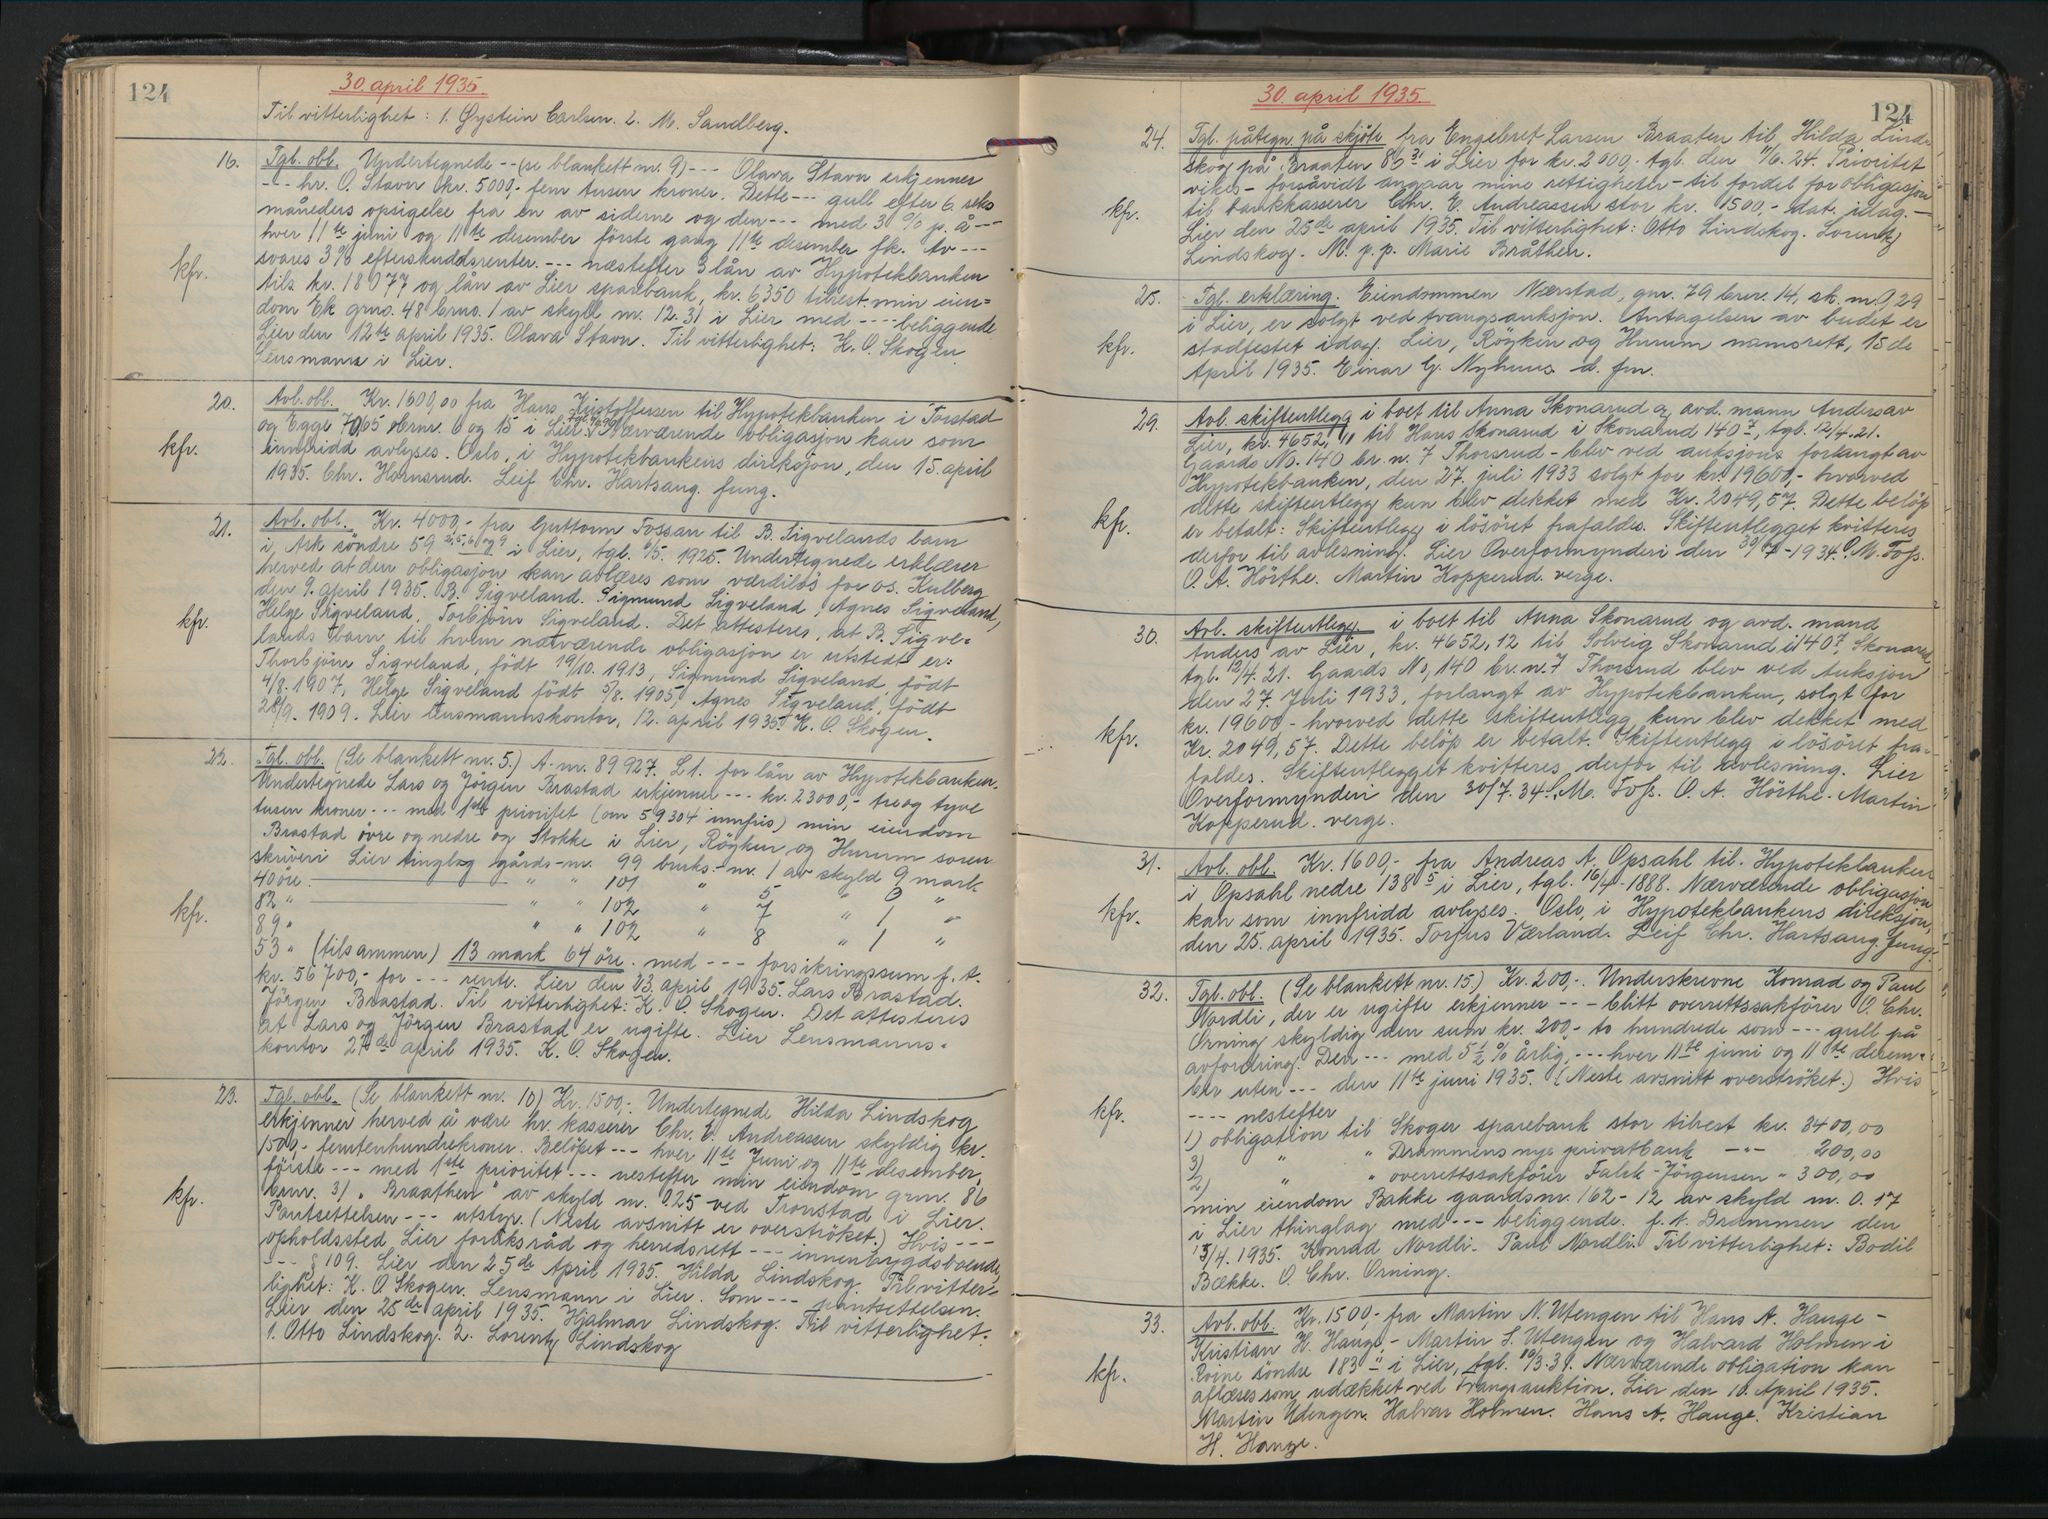 124
30. april 1935.
Til vitterlighet: 1. Øystein Carlsen. 2. M. Sandberg.
16. Tgl. obl. Undertegnede -- (se blankett nr. 9) --- Olava Stavn erkjenner
--- hr. O. Stavn kr. 5000,- fem tusen kroner. Dette --- gull efter 6. seks
måneders opsigelse fra en av siderne og den --- med 3 % p. å ---
hver 11te juni og 11te desember første gang 11te desember fk. Av ---
kfr. svares 3% efterskuddsrenter. --- næstefter 3 lån av Hypotekbanken
tils. kr. 18077 og lån av Lier sparebank, kr. 6350 tilrest. min eien=
dom Ek grno. 48 brno. 1 av skyll m. 12.31 i Lier med ---- beliggende
Lier den 12te april 1935. Olava Stavn. Til vitterlighet: K. O. Skogen.
Lensmann i Lier.
20. Avl. obl. Kr. 1600,00 fra Hans Kristoffersen til Hypotekbanken i Torstad
og Egge 70, 65 brnr. 6 og 15 i Lier. Nærværende obligasjon kan som
kfr. innfridd avlyses. Oslo, i Hypotekbankens direksjon, den 15. april
1935. Chr. Hornsrud. Leif Chr. Hartsang. fung.
21. Avl. obl. Kr. 4000,- fra Guttorm Fossan til B. Sigvelands barn
i Ask søndre 59 2,5,6 og 9 i Lier, tgl. 6/5. 1925. Undertegnede erklærer
herved at den obligasjon kan avlæses som værdiløs for os. Kulberg
den 9. april 1935. B. Sigveland. Sigmund Sigveland, Agnes Sigveland,
kfr. Helge Sigveland. Torbjørn Sigveland. Det attesteres, at B. Sigve=
lands barn til hvem nærværende obligasjon er utstedt er:
Thorbjørn Sigveland, født 19/10. 1913, Sigmund Sigveland, født
4/8. 1907, Helge Sigveland født 5/8. 1905, Agnes Sigveland, født
28/9. 1909. Lier lensmannskontor, 12. april 1935. K. O. Skogen.
22. Tgl. obl. (Se blankett nr. 5.) A. nr. 89927. L 1. for lån av Hypotekbanken.
Undertegnede Lars og Jørgen Brastad erkjenner --- kr. 23000,- tre og tyve
tusen kroner --- med 1ste prioritet (om 59304 innfris) min eiendom
Brastad øvre og nedre og Stokke i Lier, Røyken og Hurum soren
skriveri Lier tinglag gårds-nr. 99 bruks-nr. 1 av skyld 9 mark
40 øre. " " 101 " 5 " 0 "
kfr. 82 " " " 102 " 7 " 1 "
89 " " " 102 " 8 " 1 "
53 " (tilsammen) 13 mark 64 øre. med --- forsikringssum f. t.
kr. 56700,- for --- rente. Lier den 23. april 1935. Lars Brastad.
Jørgen Brastad. Til vitterlighet: K. O. Skogen. Det attesteres
at Lars og Jørgen Brastad er ugifte. Lier Lensmanns=
kontor 27de april 1935. K. O. Skogen.
23. Tgl. obl. (Se blankett nr. 10) Kr. 1500,-. Undertegnede Hilda Lindskog
erkjenner herved å være hr. kasserer Chr. E. Andreassen skyldig kr.
1500,- femtenhundrekroner. Beløpet --- hver 11te Juni og 11te desember,
første --- med 1ste prioritet --- nestefter min eiendom grnr. 86
kfr. brnr. 31 "Braathen" av skyld m. 0.25 ved Tronstad i Lier.
Pantsettelsen --- utstyr. (Neste avsnitt er overstrøket.) Hvis ---
opholdssted Lier forliksråd og herredsrett --- innenbygdsboende
--- § 109. Lier den 25de April 1935. Hilda Lindskog. Til vitter=
lighet: K. O Skogen. Lensmann i Lier. Som --- pantsettelsen.
Lier den 25de april 1935. Hjalmar Lindskog. Til vitterlighet:
1. Otto Lindskog. 2. Lorentz Lindskog
124
30. april 1935.
24. Tgl. påtegn. på skjøte fra Engebret Larsen Braaten til Hilda Linds-
skog på Braaten 86 31 i Lier for kr. 2000,- tgl. den 11/6. 24. Prioritet
vikes - forsåvidt angaar mine rettigheter - til fordel for obligasjon
kfr. til bankkasserer Chr. E. Andreassen stor kr. 1500,- dat. idag. -
Lier den 25de april 1935. Til vitterlighet: Otto Lindskog. Lorentz
Lindskog. M. p. p. Marie Bråthen.
25. Tgl. erklæring. Eiendommen Nærstad, gnr. 79 brnr. 14, sk. m. 0,29
i Lier, er solgt ved tvangsauksjon. Antagelsen av budet er
kfr. stadfestet idag. Lier, Røyken og Hurum namsrett, 15de
April 1935. Einar G. Nyhuus d. fm.
29. Avl. skifteutlegg i boet til Anna Skonarud og avd. mann Anders av
Lier, kr. 4652,11 til Hans Skonarud i Skonarud 140 7, tgl. 12/4. 21.
Gaards No. 140 br. n. 7 Thorsrud - blev ved auksjon forlangt av
Hypotekbanken, den 27. juli 1933 solgt for kr. 19600,- hvorved
dette skifteutlegg kun blev dekket med Kr. 2049,57. Dette beløp
kfr. er betalt: Skifteutlegg i løsøret frafaldes. Skifteutlegget kvitteres
derfor til avlesning. Lier Overformynderi den 30/7 - 1934. M. Foss.
O. A. Hørthe. Martin Kopperud. verge.
30. Avl. skifteutlegg i boet til Anna Skonarud og avd. mand
Anders av Lier, kr. 4652,12 til Solveig Skonarud i 140 7, Skonarud
tgl. 12/4. 21. Gaards No, 140 br. n. 7 Thorsrud blev ved Auksjon
den 27. Juli 1933, forlangt av Hypotekbanken, solgt for
kfr. kr. 19600- hvorved dette skifteutlegg kun blev dekket med
Kr. 2049,57. Dette beløp er betalt. Skifteutlegg i løsøret fra=
faldes. Skifteutlegget kvitteres derfor til avlesning. Lier
Overformynderi den 30/7. 34. M. Foss. O. A. Hörthe. Martin
Kopperud. verge.
31. Avl. obl. Kr. 1600,- fra Andreas A. Opsahl til Hypotekbanken
i Opsahl nedre 138 5 i Lier, tgl. 16/4 - 1888. Nærværende obligasjon
kfr. kan som innfridd avlyses. Oslo, i Hypotekbankens direksjon,
den 25. april 1935. Torfus Værland. Leif Chr. Hartsang fung.
32. Tgl. obl. (Se blankett nr. 15.) Kr. 200,-. Underskrevne Konrad og Paul
Nordli, der er ugifte erkjenner --- blitt overrettssakfører O. Chr.
Orning skyldig den sum kr. 200,- to hundrede som --- gull på
avfordring. Den --- med 5 1/2 % årlig, --- hver 11te juni og 11te desem=
ber uten --- den 11te juni 1935. (Neste avsnitt overstrøket.) Hvis
kfr. ---- nestefter
1) obligation til Skoger sparebank stor tilrest kr. 3400,00
3) " " Drammens nye privatbank -"- 200,00
2) " " overrettssakfører Falch-Jørgensen " 300,00
min eiendom Bakke gaardsnr. 162 - 12 av skyld m. 0. 17
i Lier thinglag med --- beliggende. f. t. Drammen den
13/4. 1935. Konrad Nordli. Paul Nordli. Til vitterlighet: Bodil
Bække. O. Chr. Orning.
33. Avl. obl. Kr. 1500,- fra Martin N. Utengen til Hans A. Hauge -
Kristian H. Hauge - Martin S. Utengen og Halvard Holmen i
kfr. søndre 183 11 i Lier, tgl. Nærværende obligation kan
aflæses som udækket ved tvangsauktion. Lier den 10. April 1935.
Martin Utengen. Halvar Holmen. Hans A. Hauge. Kristian
H. Hauge.